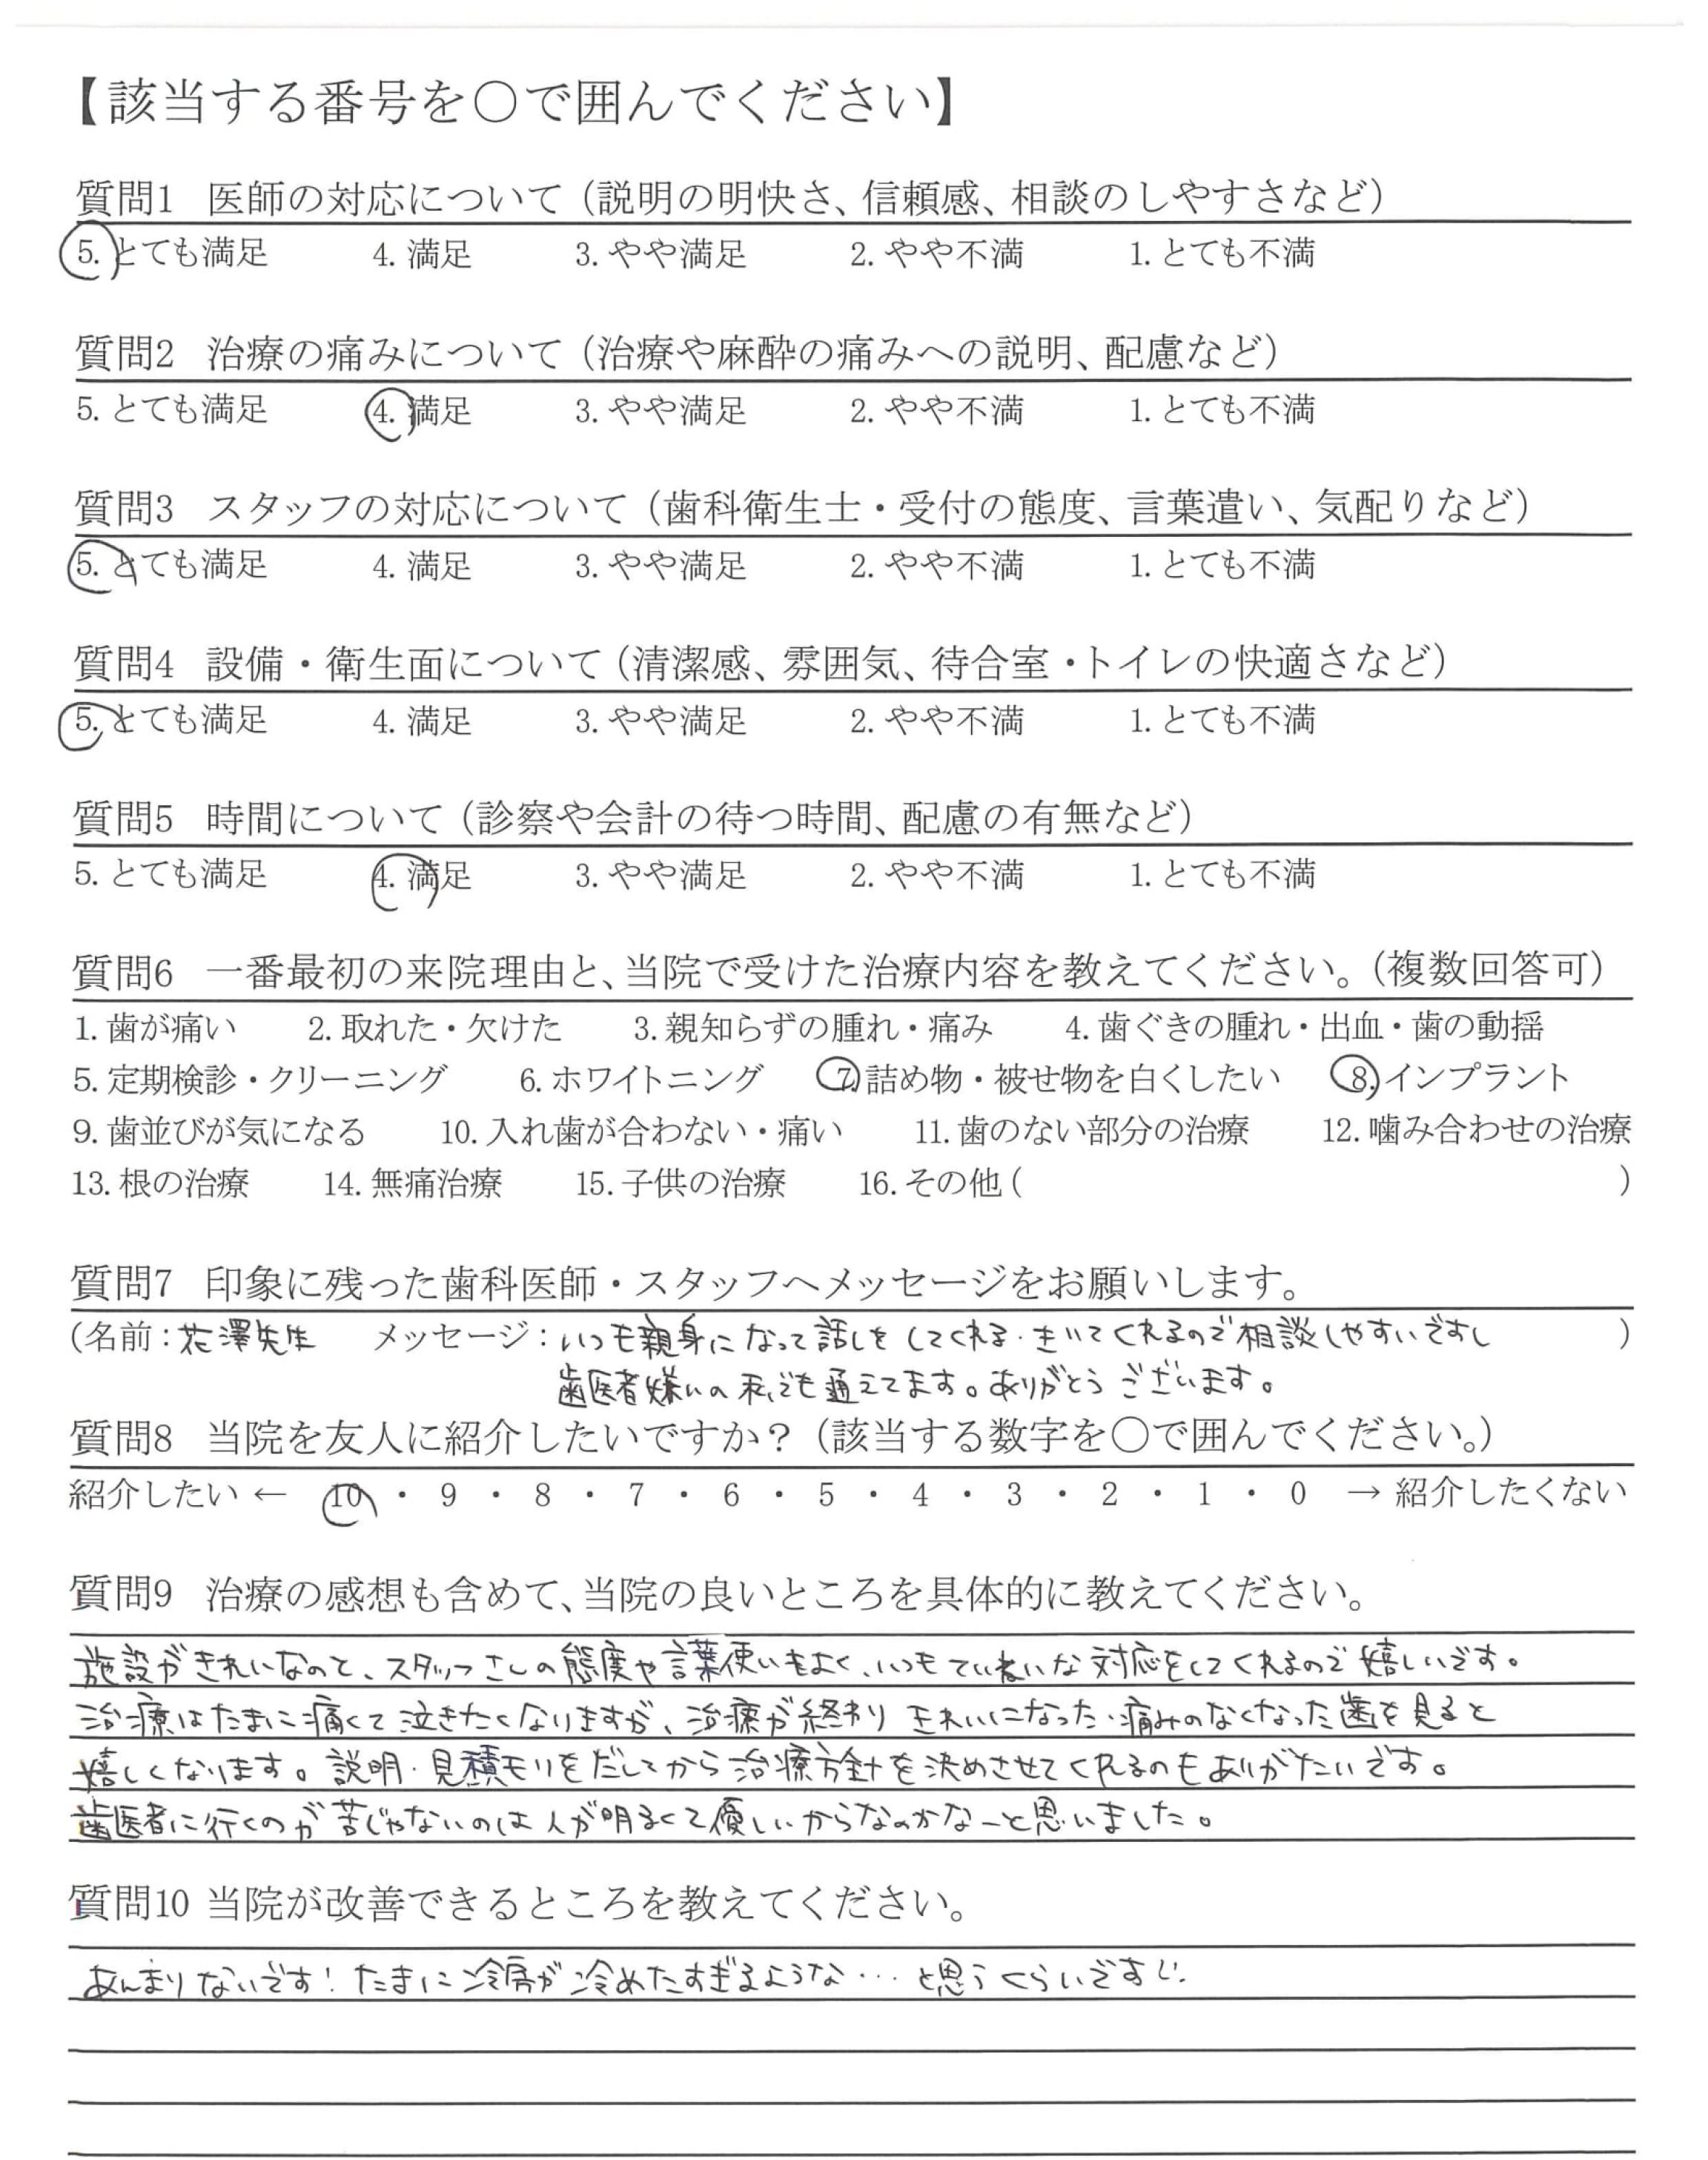 【該当する番号を○で囲んでください】
質問1 医師の対応について（説明の明快さ、信頼感、相談のしやすさなど）
5. とても満足 4. 満足 3. やや満足 2. やや不満 1. とても不満
質問2 治療の痛みについて（治療や麻酔の痛みへの説明、配慮など）
5. とても満足 4. 満足 3. やや満足 2. やや不満 1. とても不満
質問3 スタッフの対応について（歯科衛生士・受付の態度、言葉遣い、気配りなど）
5. とても満足 4. 満足 3. やや満足 2. やや不満 1. とても不満
質問4 設備・衛生面について（清潔感、雰囲気、待合室・トイレの快適さなど）
5. とても満足 4. 満足 3. やや満足 2. やや不満 1. とても不満
質問5 時間について（診察や会計の待つ時間、配慮の有無など）
5. とても満足 4. 満足 3. やや満足 2. やや不満 1. とても不満
質問6 一番最初の来院理由と、当院で受けた治療内容を教えてください。（複数回答可）
1. 歯が痛い 2. 取れた・欠けた 3. 親知らずの腫れ・痛み 4. 歯ぐきの腫れ・出血・歯の動揺
5. 定期検診・クリーニング 6. ホワイトニング 7. 詰め物・被せ物を白くしたい 8. インプラント
9. 歯並びが気になる 10. 入れ歯が合わない・痛い 11. 歯のない部分の治療 12. 噛み合わせの治療
13. 根の治療 14. 無痛治療 15. 子供の治療 16. その他（ ）
質問7 印象に残った歯科医師・スタッフへメッセージをお願いします。
（名前：花澤先生 メッセージ：いつも親身になって話しをしてくれる・きいてくれるので相談しやすいですし ）
歯医者嫌いの私でも通えてます。ありがとうございます。
質問8 当院を友人に紹介したいですか？（該当する数字を○で囲んでください。）
紹介したい ← 10 ・ 9 ・ 8 ・ 7 ・ 6 ・ 5 ・ 4 ・ 3 ・ 2 ・ 1 ・ 0 → 紹介したくない
質問9 治療の感想も含めて、当院の良いところを具体的に教えてください。
施設がきれいなのと、スタッフさんの態度や言葉使いもよく、いつもていねいな対応をしてくれるので嬉しいです。
治療はたまに痛くて泣きたくなりますが、治療が終わりきれいになった・痛みのなくなった歯を見ると
嬉しくなります。説明・見積モリをだしてから治療方針を決めさせてくれるのもありがたいです。
歯医者に行くのが苦じゃないのは人が明るくて優しいからなのかなーと思いました。
質問10 当院が改善できるところを教えてください。
あんまりないです！たまに冷房が冷めたすぎるような…と思うくらいですし．